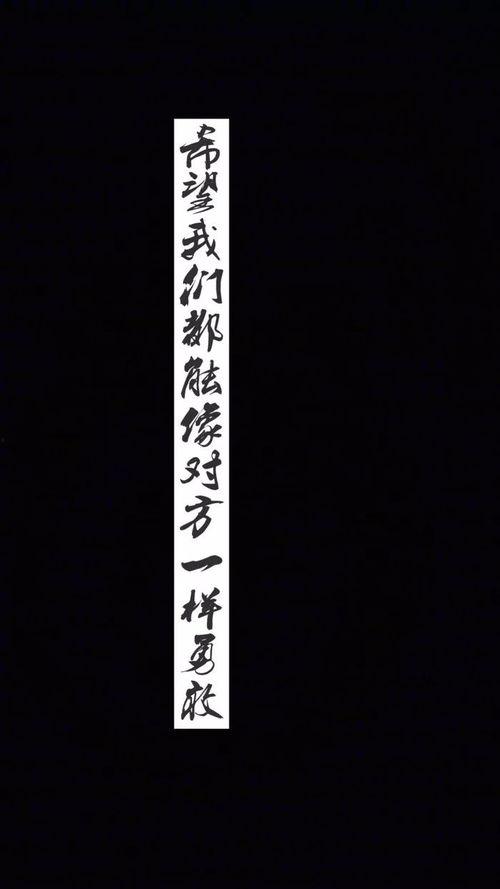 希望我们都能像对方一样勇敢